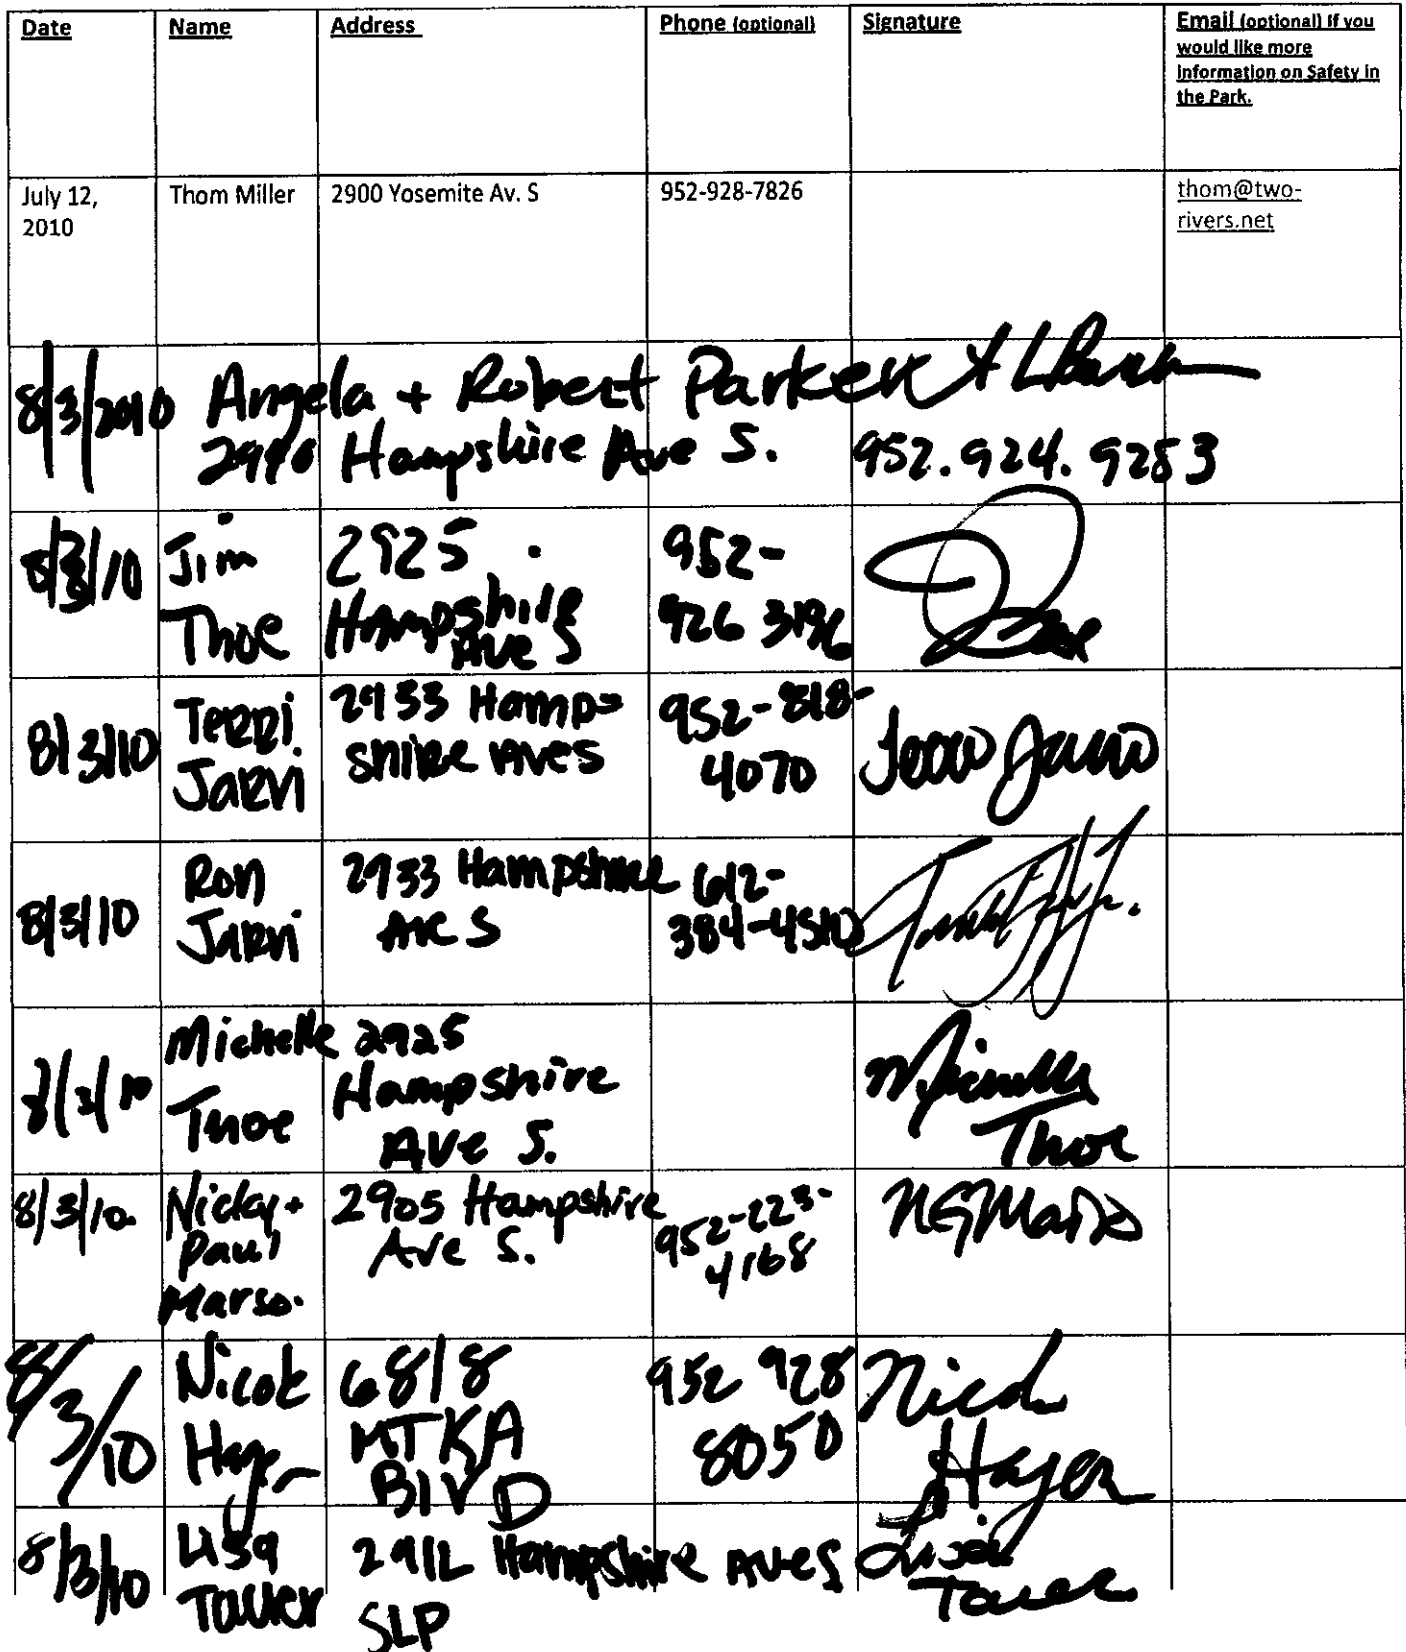 Date Name Address Phone (optional) Signature Email (optional) If you
would like more
information on Safety in
the Park.
July 12,
2010
Thom Miller 2900 Yosemite Av. S 952-928-7826 thom@two-
rivers.net
8/3/2010 Angela + Robert Parker
Hampshire Ave S. 952.924.9253
8/3/10 Jim
Thoe
2925
Hampshire
Ave S
952-
926 3196
8/3/10 Terri
Jarvi
2933 Hamp-
shire Ave S
952-818-
4070
8/3/10 Ron
Jarvi
2933 Hampshire
Ave S
612-
384-4510
8/3/10 Michelle
Thoe
2925
Hampshire
Ave S.
Michelle
Thoe
8/3/10 Nicky +
Paul
Marso.
2905 Hampshire
Ave S.
952-223-
4168
8/3/10 Nicole
Hagen
6818
MTKA
BLVD
952 928
8050
Nicole
Hagen
8/3/10 Lisa
2912 Hampshire Ave S
SLP
Lisa